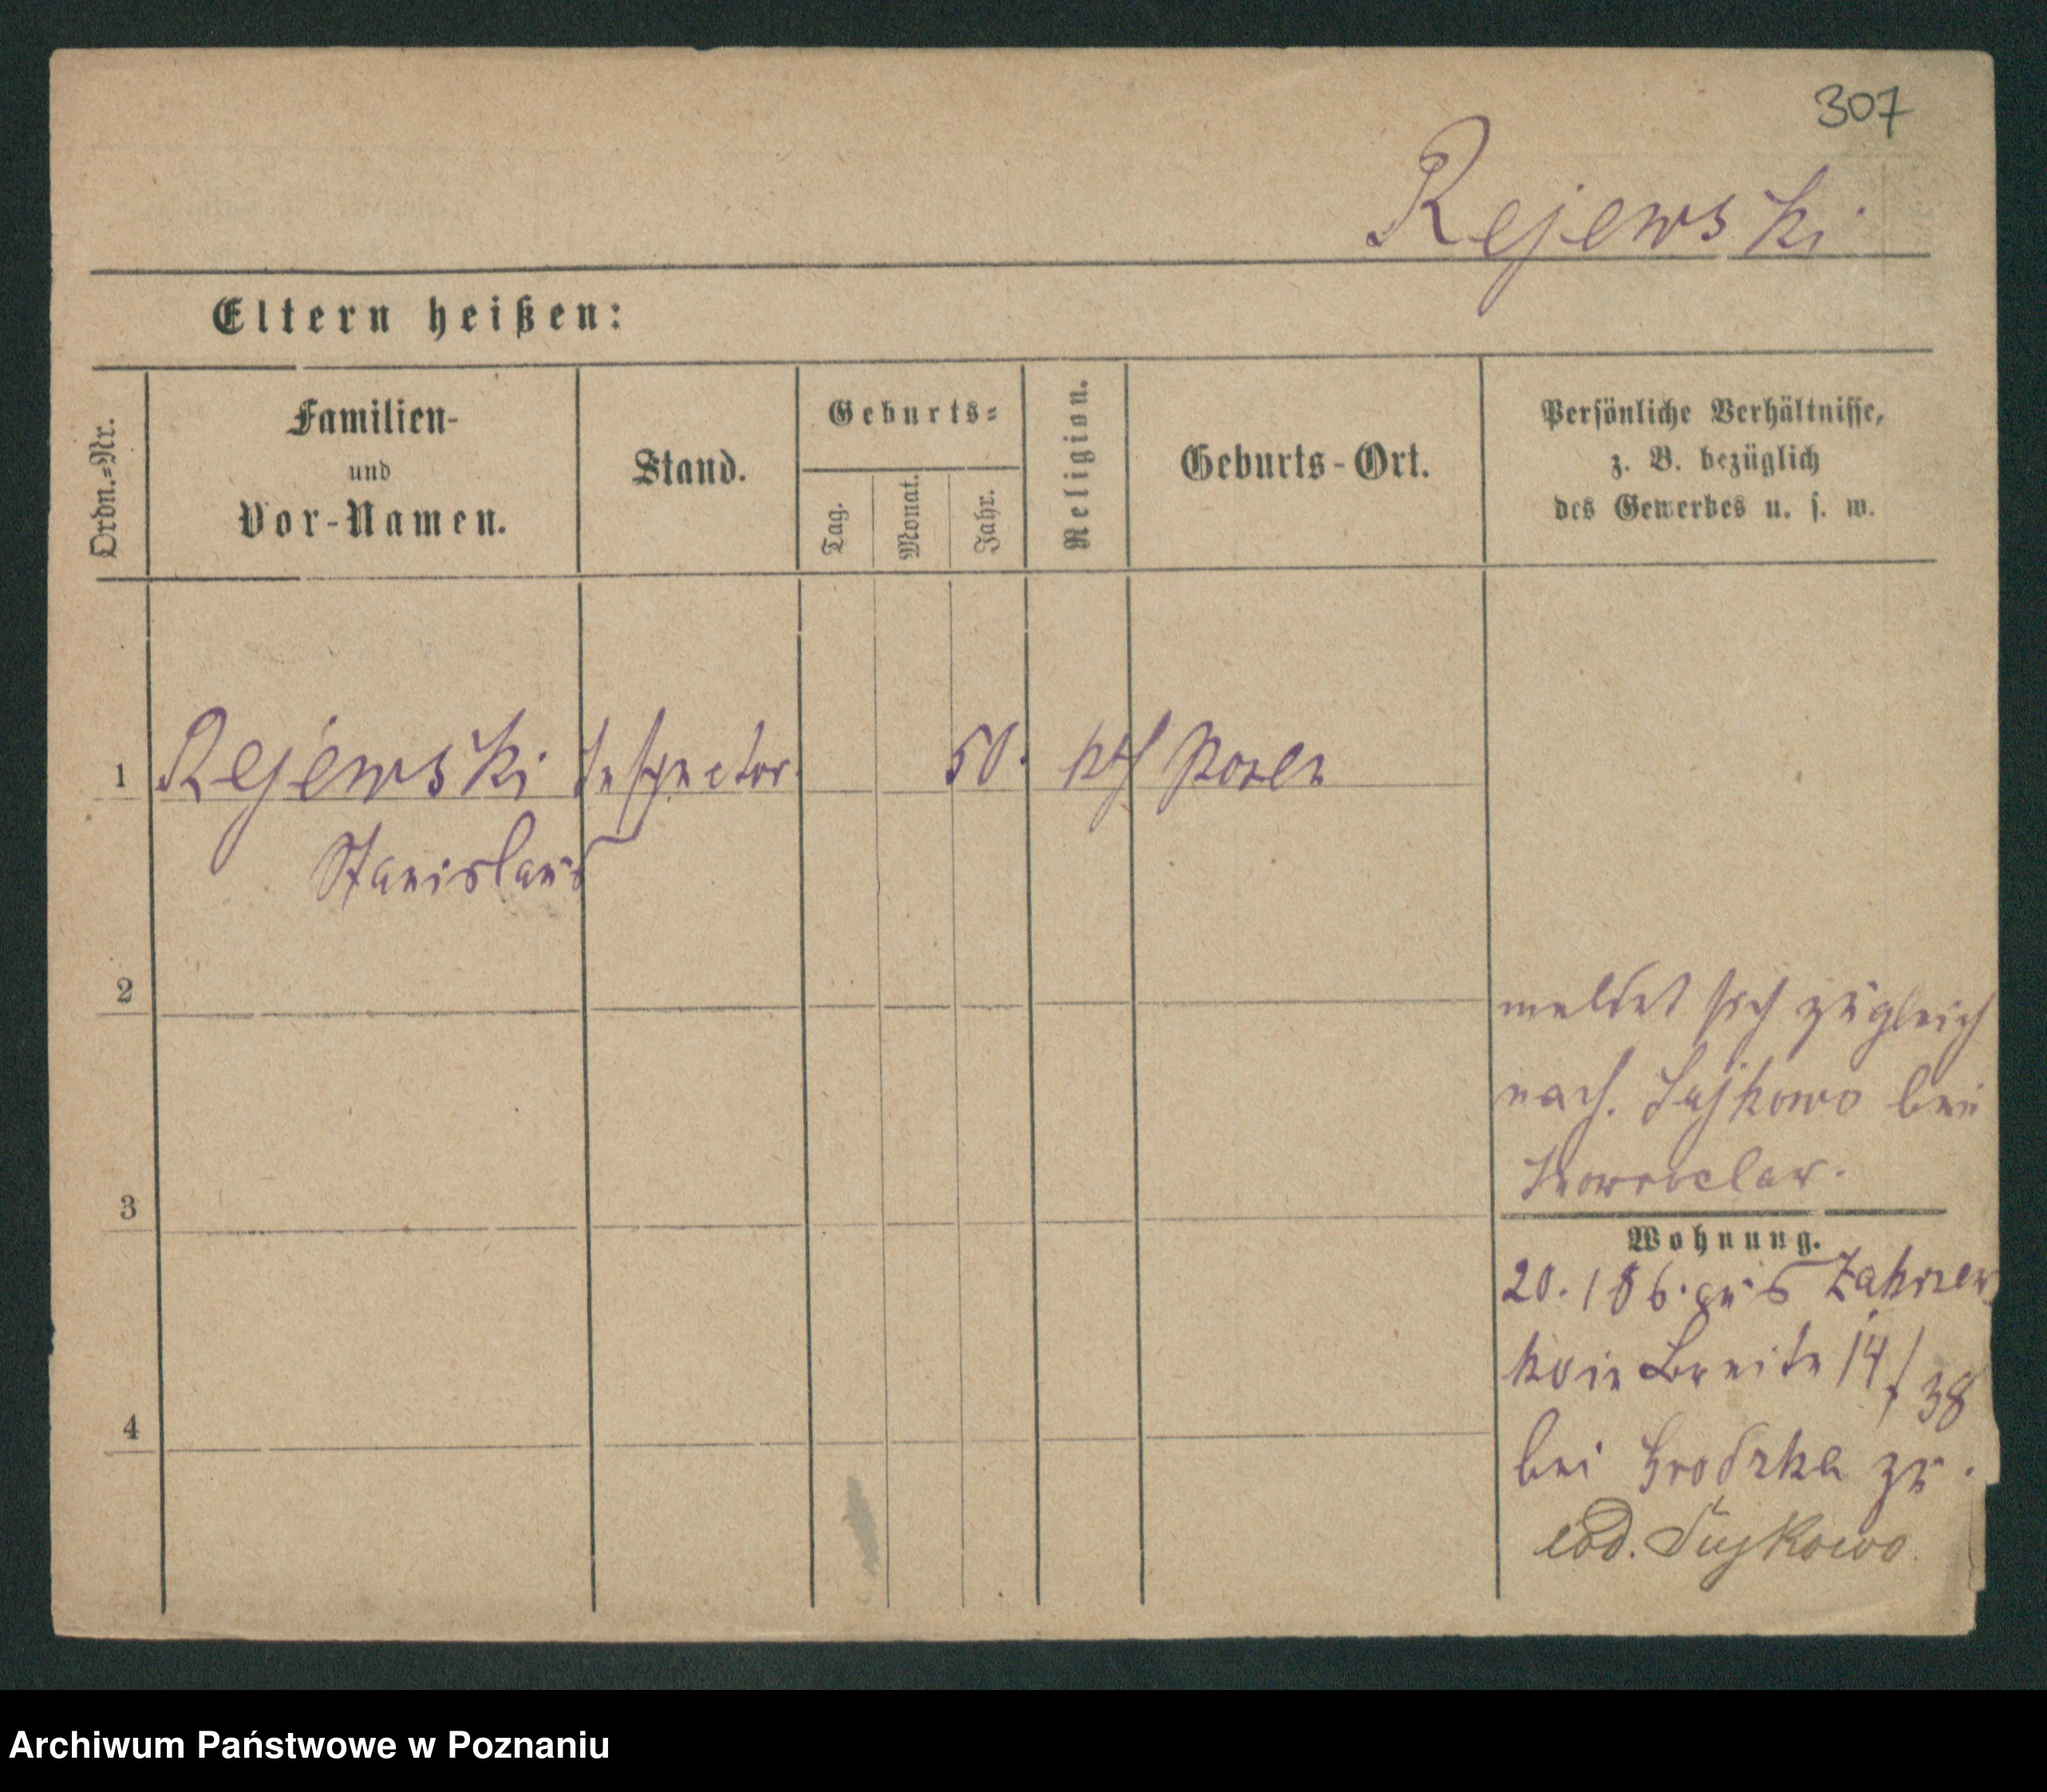 307
Rejewski
Eltern heißen:
Ordn.=Nr.
Familien-
und
Vor-Namen.
Stand.
Geburts=
Tag.
Monat.
Jahr.
Religion.
Geburts-Ort.
Persönliche Verhältnisse,
z. B. bezüglich
des Gewerbes u. s. w.
1 Rejewski Inspector 50. kth Posen
Stanislaus
2
meldet sich zugleich
nach. Sujkowo bei
Inowraclaw.
3
Wohnung.
20. 1 86. aus
Breite 14/38
4
bei Grodzka zu.
eod. Sujkowo.
Archiwum Państwowe w Poznaniu